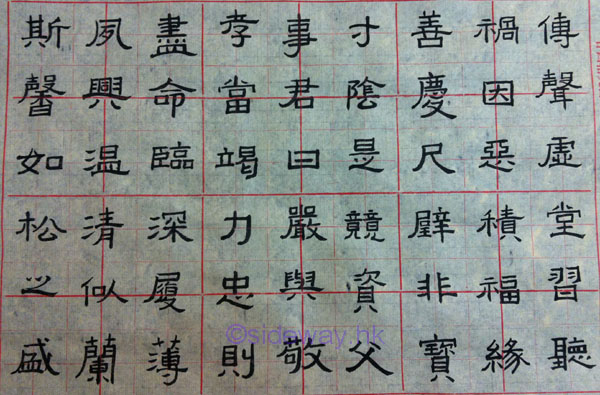 傳聲虛堂習聽
禍因惡積福緣
善慶尺璧非寶
寸陰是競資父
事君曰嚴與敬
孝當竭力忠則
盡命臨深履薄
夙興温清似蘭
斯馨如松之盛
©sideway.hk